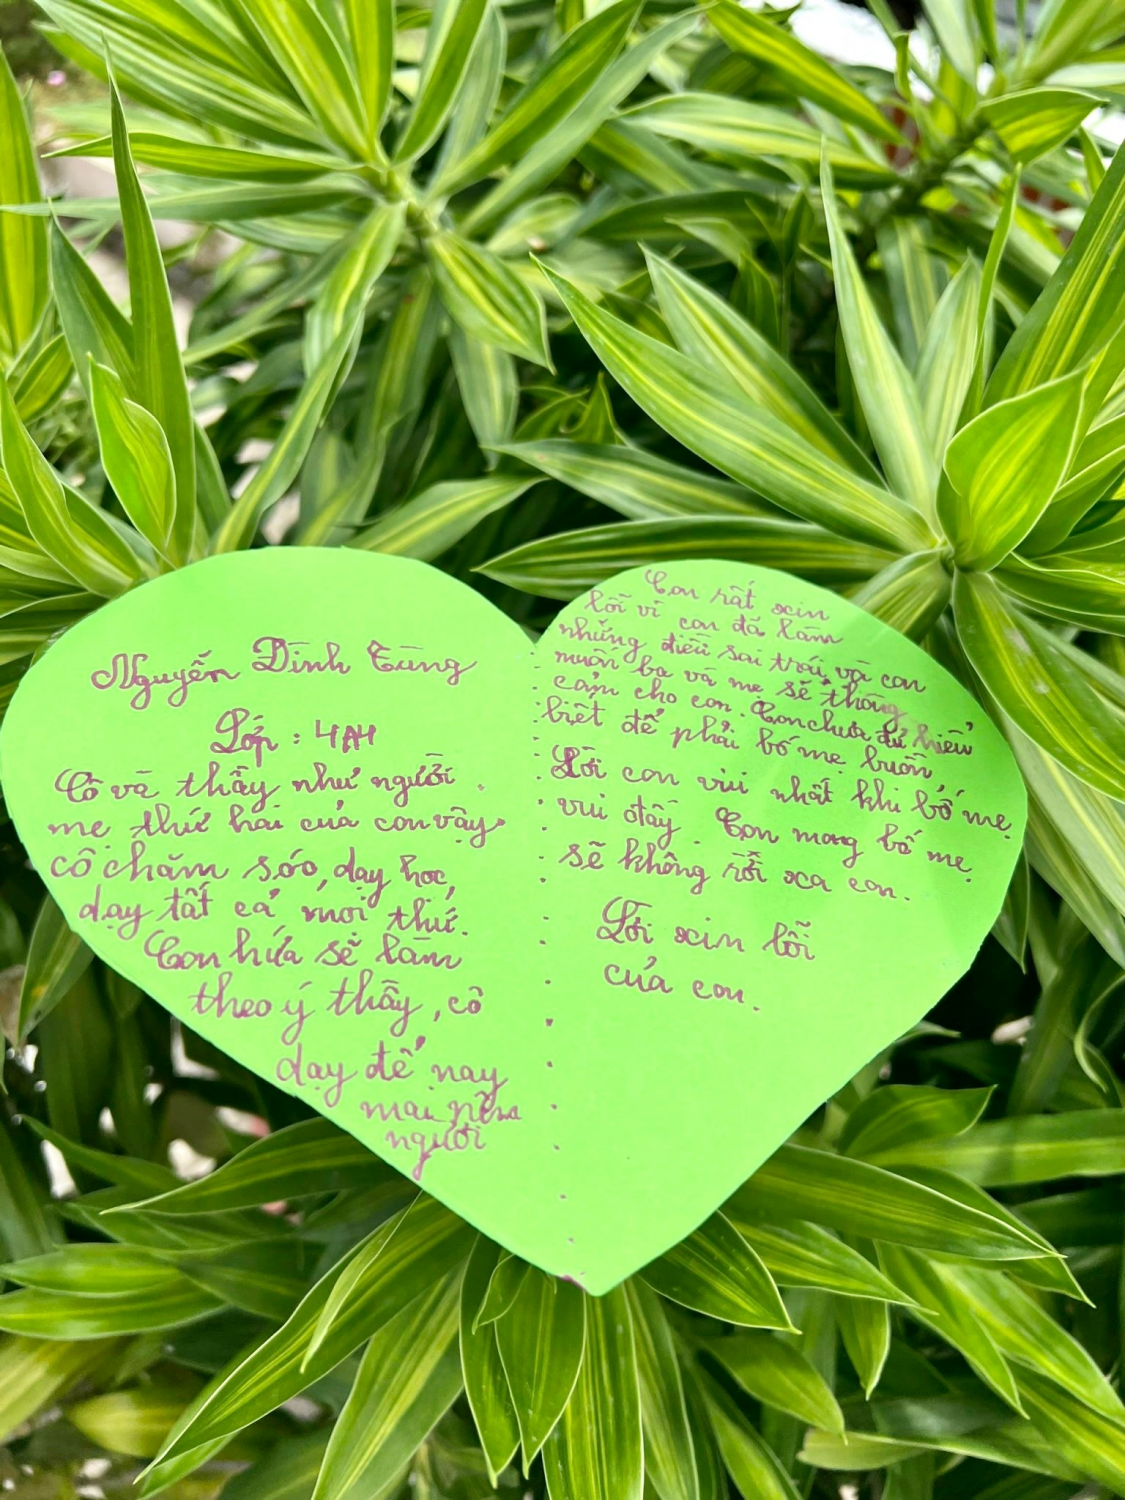 Nguyễn Đình Tùng
Lớp : 4A4
Cô và thầy như người
mẹ thứ hai của con vậy
cô chăm sóc, dạy học,
dạy tất cả mọi thứ.
Con hứa sẽ làm
theo ý thầy, cô
dạy để nay
mai nên
người
Con rất xin
lỗi vì con đã làm
những điều sai trái, và con
muốn ba và mẹ sẽ thông
cảm cho con. Con chưa đủ hiểu
biết để phải bố mẹ buồn
Lời con vui nhất khi bố mẹ
vui đấy. Con mong bố mẹ
sẽ không rời xa con.
Lời xin lỗi
của con.